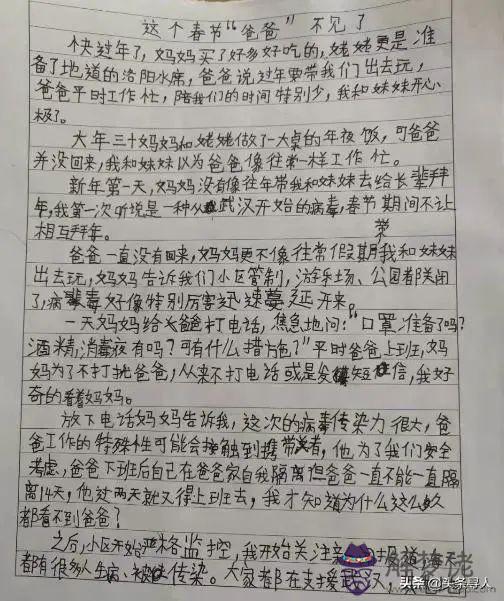 这个春节“爸爸”不见了
快过年了,妈妈买了好多好吃的,姥姥更是准
备了地道的洛阳水席,爸爸说过年要带我们出去玩,
爸爸平时工作忙,陪我们的时间特别少,我和妹妹开心
极了。
大年三十妈妈和姥姥做了一大桌的年夜饭,可爸爸
并没回来,我和妹妹以为爸爸像往常一样工作忙。
新年第一天,妈妈没有像往年带我和妹妹去给长辈拜
年,我第一次听说是一种从武汉开始的病毒,春节期间不让
相互拜年。
爸爸一直没有回来,妈妈更不像往常假期带我和妹妹
出去玩,妈妈告诉我们小区管制,游乐场、公园都关闭
了,病毒好像特别厉害迅速蔓延开来。
一天妈妈给爸爸打电话,焦急地问:“口罩准备了吗?
酒精,消毒液有吗?可有什么措施?”平时爸爸上班,妈
妈为了不打扰爸爸,从来不打电话或是发短信,我好
奇的看着妈妈。
放下电话妈妈告诉我,这次的病毒传染力很大,爸
爸工作的特殊性可能会接触到携带者,他为了我们安全
考虑,爸爸下班后自己在爸爸家自我隔离但爸爸一直不能一直隔
离14天,他过两天就又得上班去,我才知道为什么这么久
都看不到爸爸?
之后,小区开始严格监控,我开始关注新闻报道每天
都有很多人生病、被传染。大家都在支援武汉,
头条@头条寻人